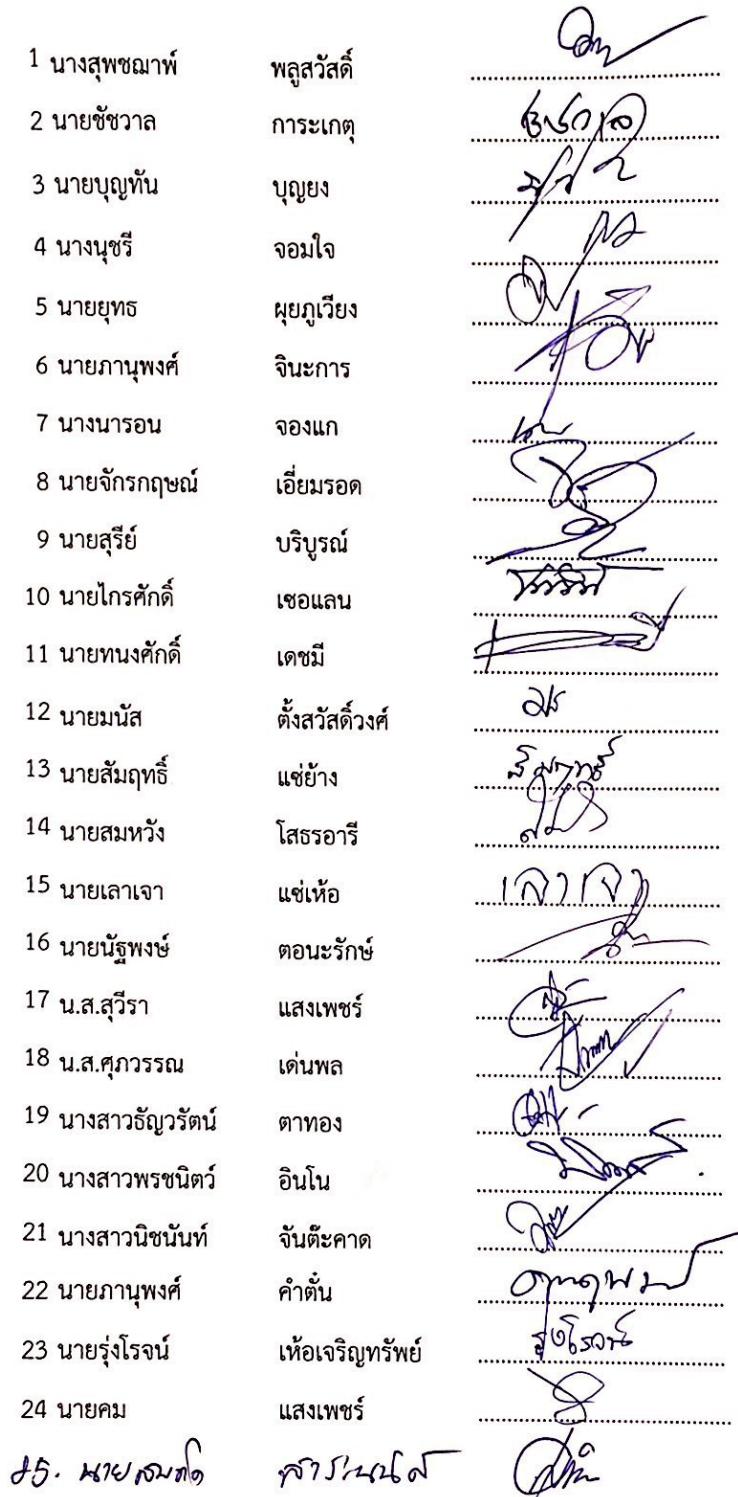 1 นางสุพชฌาพ์ พลูสวัสดิ์
2 นายชัชวาล การะเกตุ
3 นายบุญทัน บุญยง
4 นางนุชรี จอมใจ
5 นายยุทธ ผุยภูเวียง
6 นายภานุพงศ์ จินะการ
7 นางนารอน จองแก
8 นายจักรกฤษณ์ เอี่ยมรอด
9 นายสุรีย์ บริบูรณ์
10 นายไกรศักดิ์ เซอแลน
11 นายทนงศักดิ์ เดชมี
12 นายมนัส ตั้งสวัสดิ์วงศ์
13 นายสัมฤทธิ์ แซ่ย้าง สัมฤทธิ์
14 นายสมหวัง โสธรอารี
15 นายเลาเจา แซ่เห้อ เลาเจา
16 นายนัฐพงษ์ ตอนะรักษ์
17 น.ส.สุวีรา แสงเพชร์
18 น.ส.ศุภวรรณ เด่นพล
19 นางสาวธัญวรัตน์ ตาทอง
20 นางสาวพรชนิตว์ อินโน
21 นางสาวนิชนันท์ จันต๊ะคาด
22 นายภานุพงศ์ คำตั๋น ภานุพงศ์
23 นายรุ่งโรจน์ เห้อเจริญทรัพย์ รุ่งโรจน์
24 นายคม แสงเพชร์
25. นาย